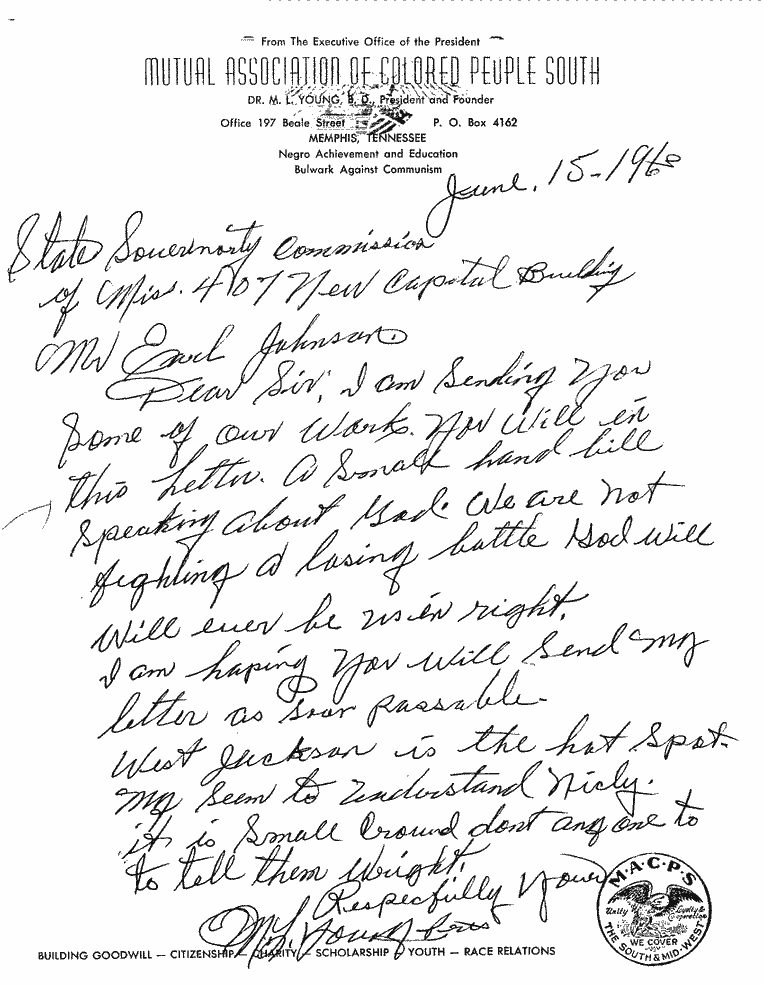 From The Executive Office of the President
MUTUAL ASSOCIATION OF COLORED PEOPLE SOUTH
DR. M. L. YOUNG, B. D., President and Founder
Office 197 Beale Street P. O. Box 4162
MEMPHIS, TENNESSEE
Negro Achievement and Education
Bulwark Against Communism
June. 15-1960
State Souernorty Commission
of Miss. 407 New Capital Building
Mr Earl Johnson.
Dear Sir; I am Sending You
Some of our Work. You Will in
this letter. A Small hand bill
Speaking about God. We are not
fighting a losing battle God will
Will ever be us in right.
I am hoping You Will Send My
letter as soor passable.
West Jackson is the hot Spot.
My Seem to understand Nicly.
it is Small Cround dont any one to
to tell them Wright.
Respecfully Your
M. L. Young Pres
M.A.C.P.S
Unity
Loyalty &
Cooperation
WE COVER
THE SOUTH & MID-WEST
BUILDING GOODWILL — CITIZENSHIP — CHARITY — SCHOLARSHIP — YOUTH — RACE RELATIONS